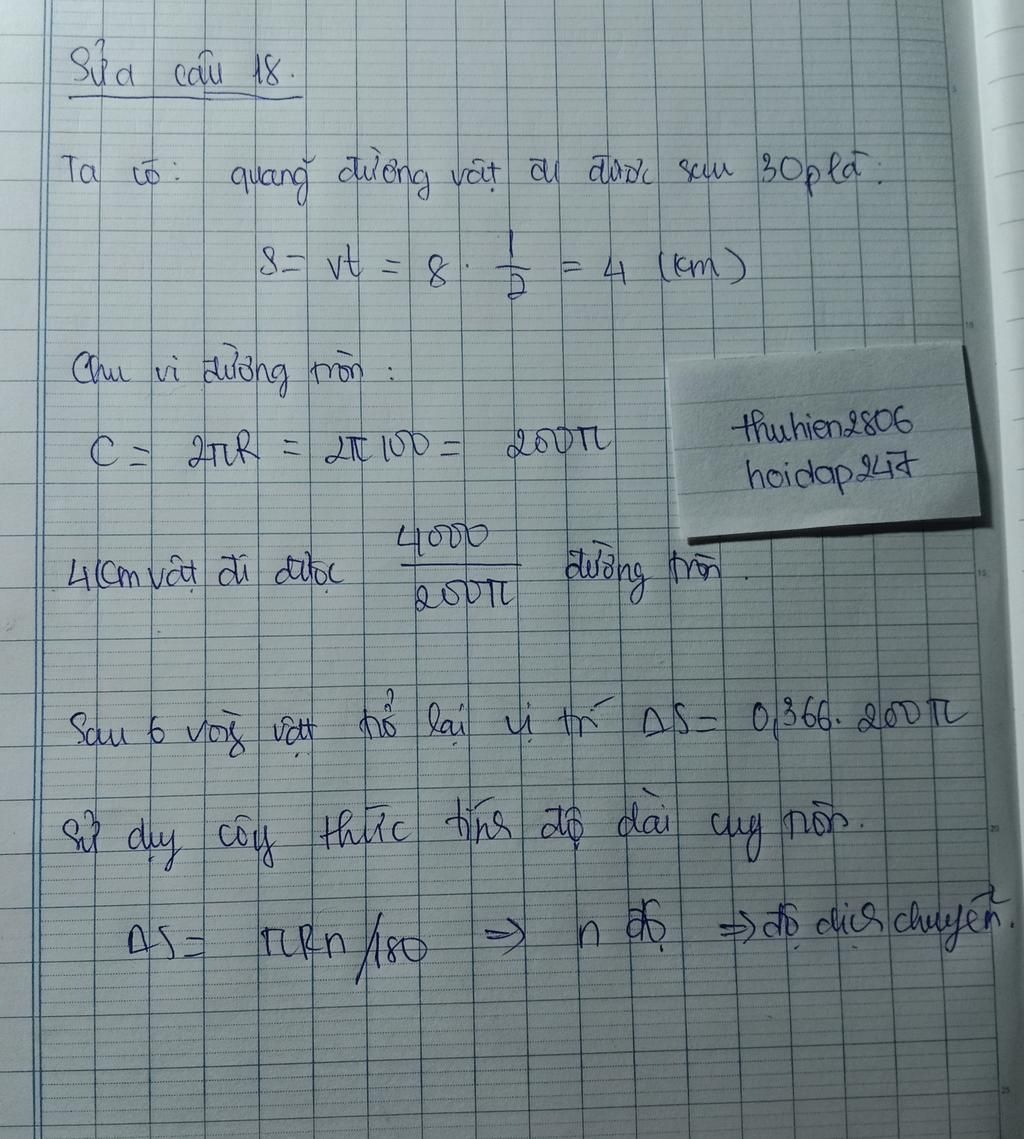 Sửa câu 18.
Ta có: quãng đường vật đi được sau 30p là:
S = vt = 8 . 1/2 = 4 (km)
Chu vi đường tròn:
C = 2πR = 2π 100 = 200π
thuhien2806
hoidap247
4km vật đi được 4000/200π đường tròn.
Sau 6 vòng vật trở lại vị trí ΔS = 0,366. 200π
Sử dụng công thức tính độ dài cung tròn.
ΔS = πRn/180 ⇒ n độ ⇒ độ dịch chuyển.